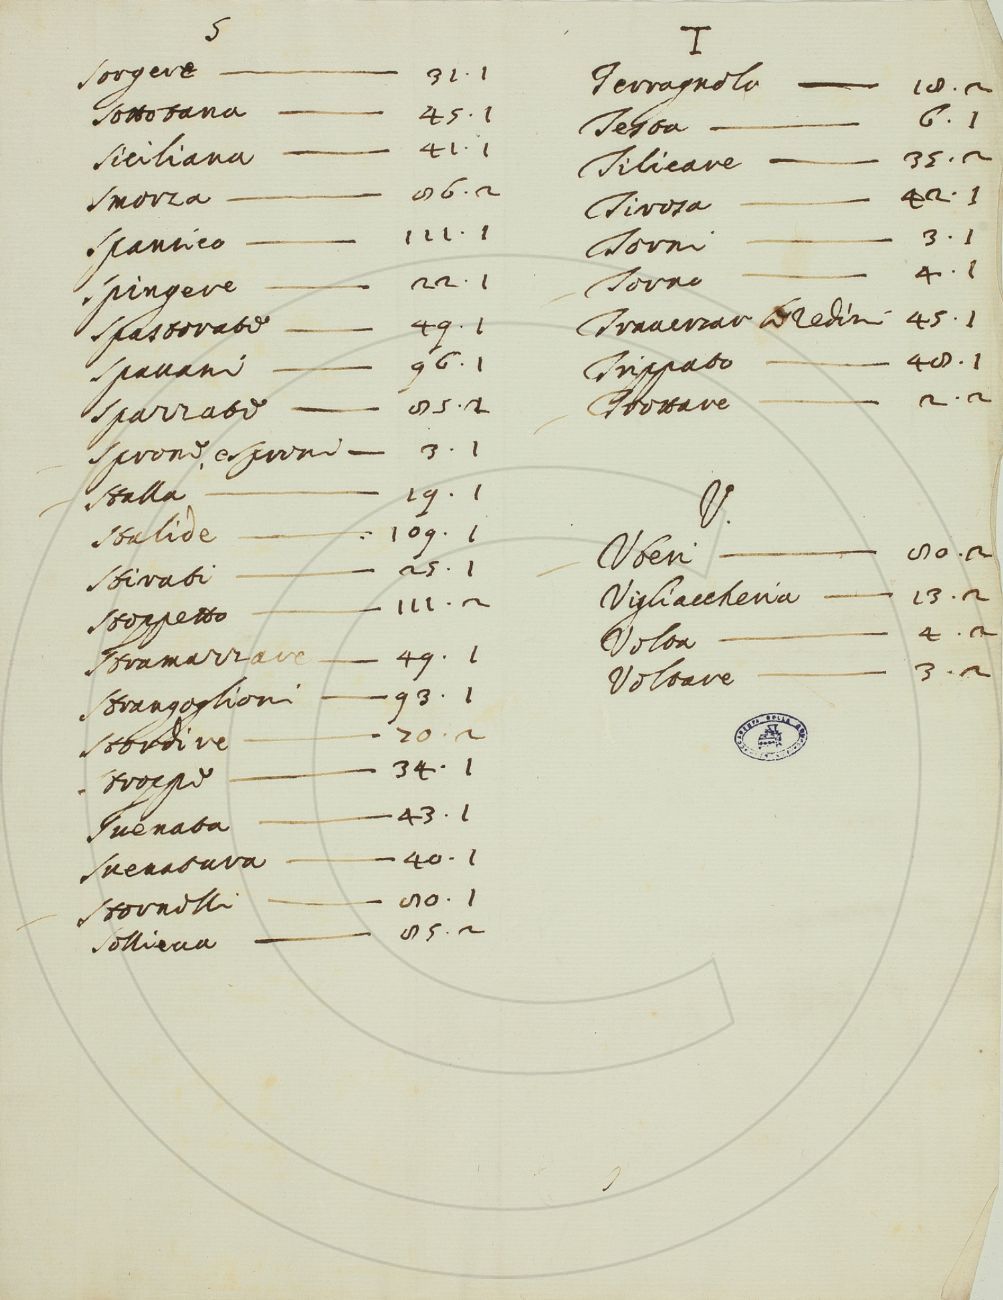 S
Sorgere 31.1
Sottotana 45.1
Siciliana 41.1
Smorza 86.2
Spannico 111.1
Spingere 22.1
Spastorato 49.1
Spauani 96.1
Sparrato 85.2
Sprone, e sproni 3.1
Stalla 19.1
Stalide 109.1
Stirati 25.1
Stoppetto 111.2
Stramazzare 49.1
Strangoglioni 93.1
Stordire 20.2
Stroppie 34.1
Suenata 43.1
Suenatura 40.1
Stornelli 80.1
Sollieua 85.2
T
Terragnolo 18.2
Testa 6.1
Tilicare 35.2
Tirosa 42.1
Torni 3.1
Torno 4.1
Trauerzar Redini 45.1
Trippato 48.1
Trottare 2.2
V.
Vberi 80.2
Vigliaccheria 13.2
Volta 4.2
Voltare 3.2